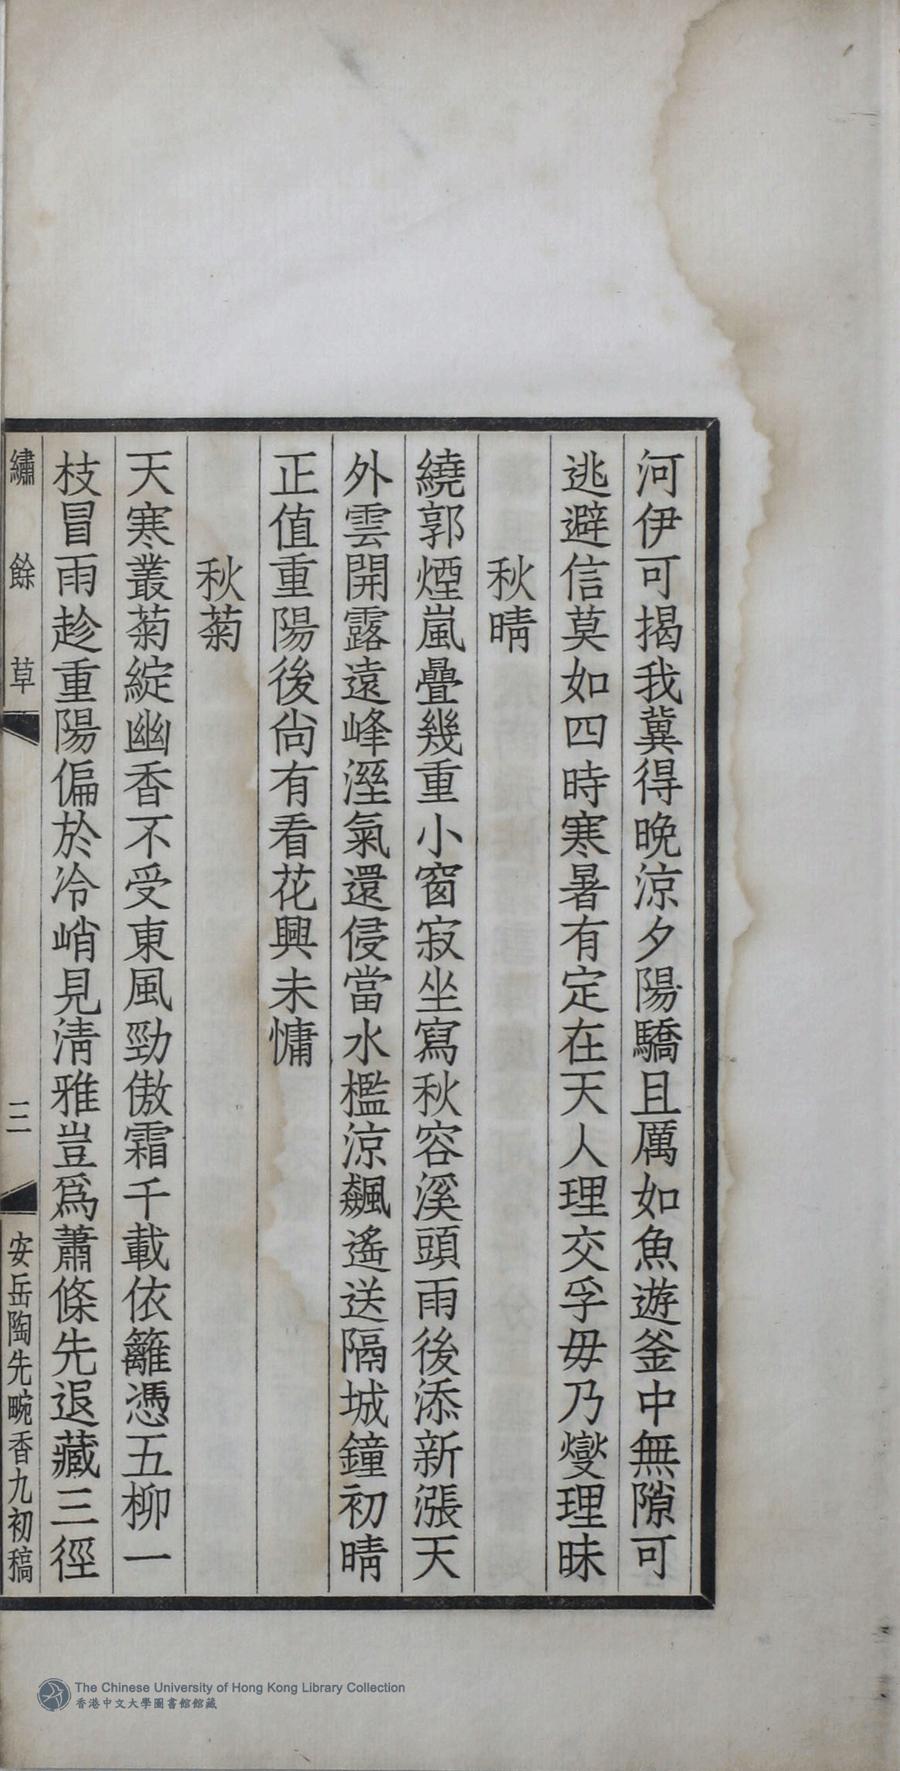 河伊可揭我冀得晚涼夕陽驕且厲如魚遊釜中無隙可
逃避信莫如四時寒暑有定在天人理交孚毋乃燮理昧
秋晴
繞郭煙嵐疊幾重小窗寂坐寫秋容溪頭雨後添新漲天
外雲開露遠峰溼氣還侵當水檻涼飆遙送隔城鐘初晴
正值重陽後尙有看花興未慵
秋菊
天寒叢菊綻幽香不受東風勁傲霜千載依籬憑五柳一
枝冒雨趁重陽偏於冷峭見淸雅豈爲蕭條先退藏三徑
繡餘草
三
安岳陶先畹香九初稿
The Chinese University of Hong Kong Library Collection
香港中文大學圖書館館藏